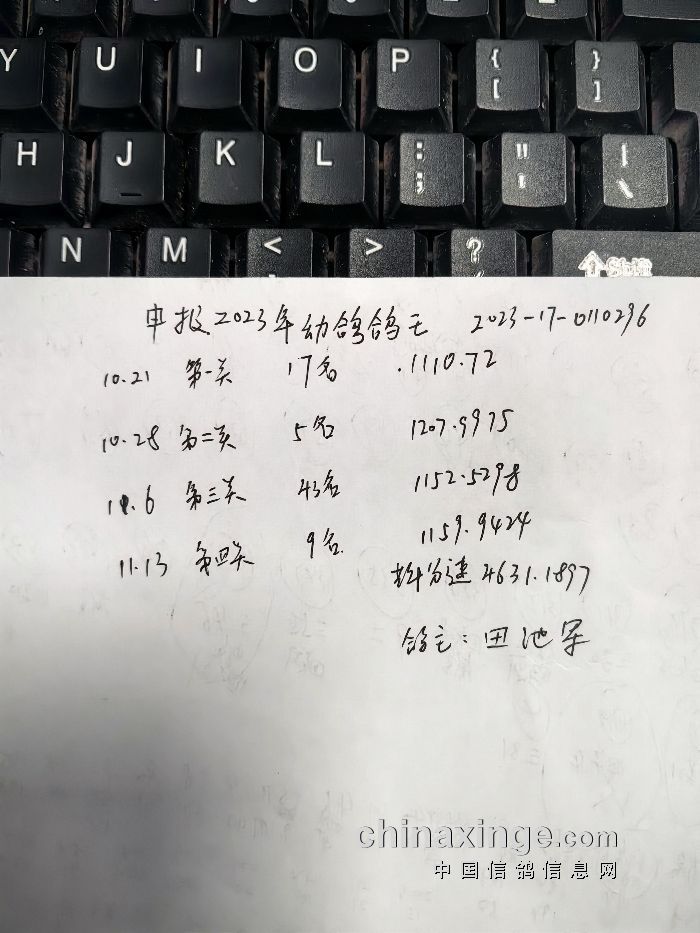 Y U I O P { [ } ]
H J K L : ; " ' | \
N M < > ? ⇧Shift
申报2023年幼鸽鸽王 2023-17-0110296
10.21 第一关 17名 .1110.72
10.28 第二关 5名 1207.9975
11.6 第三关 43名 1152.5298
11.13 第四关 9名. 1159.9424
总分速 4631.1897
鸽主:田池军
chinaxinge.com
中国信鸽信息网